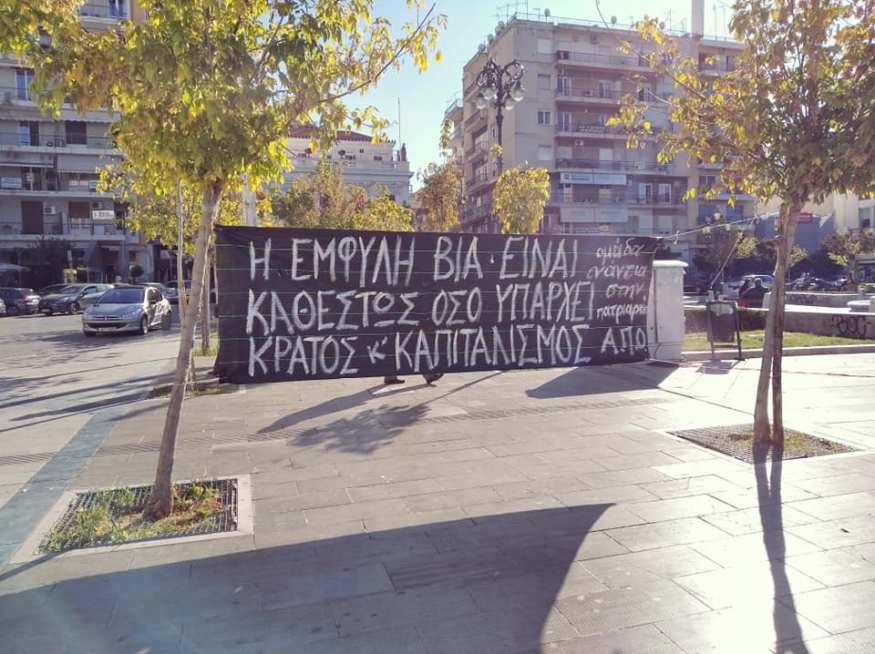 Η ΕΜΦΥΛΗ ΒΙΑ ΕΙΝΑΙ
ΚΑΘΕΣΤΩΣ ΟΣΟ ΥΠΑΡΧΕΙ
ΚΡΑΤΟΣ κ' ΚΑΠΙΤΑΛΙΣΜΟΣ Α.Π.Ο.
ομάδα
ενάντια
στην
πατριαρχία